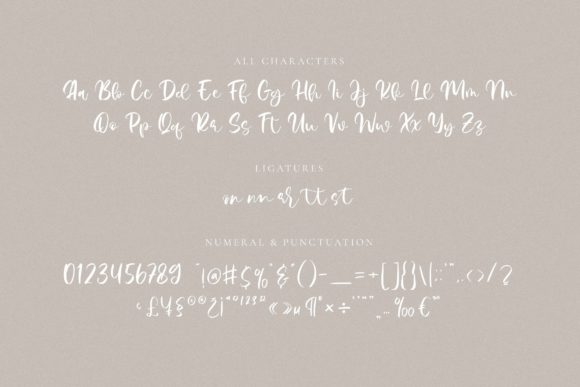 ALL CHARACTERS
Aa Bb Cc Dd Ee Ff Gg Hh Ii Jj Kk Ll Mm Nn
Oo Pp Qq Rr Ss Tt Uu Vv Ww Xx Yy Zz
LIGATURES
on nn ar tt st
NUMERAL & PUNCTUATION
0123456789 !@#$%^&*()-_=+[]{}\|:;'",.<>/?
£¥§©®¿¡ªº¹²³ «»µ¶°×÷‘’“”„…‰€™